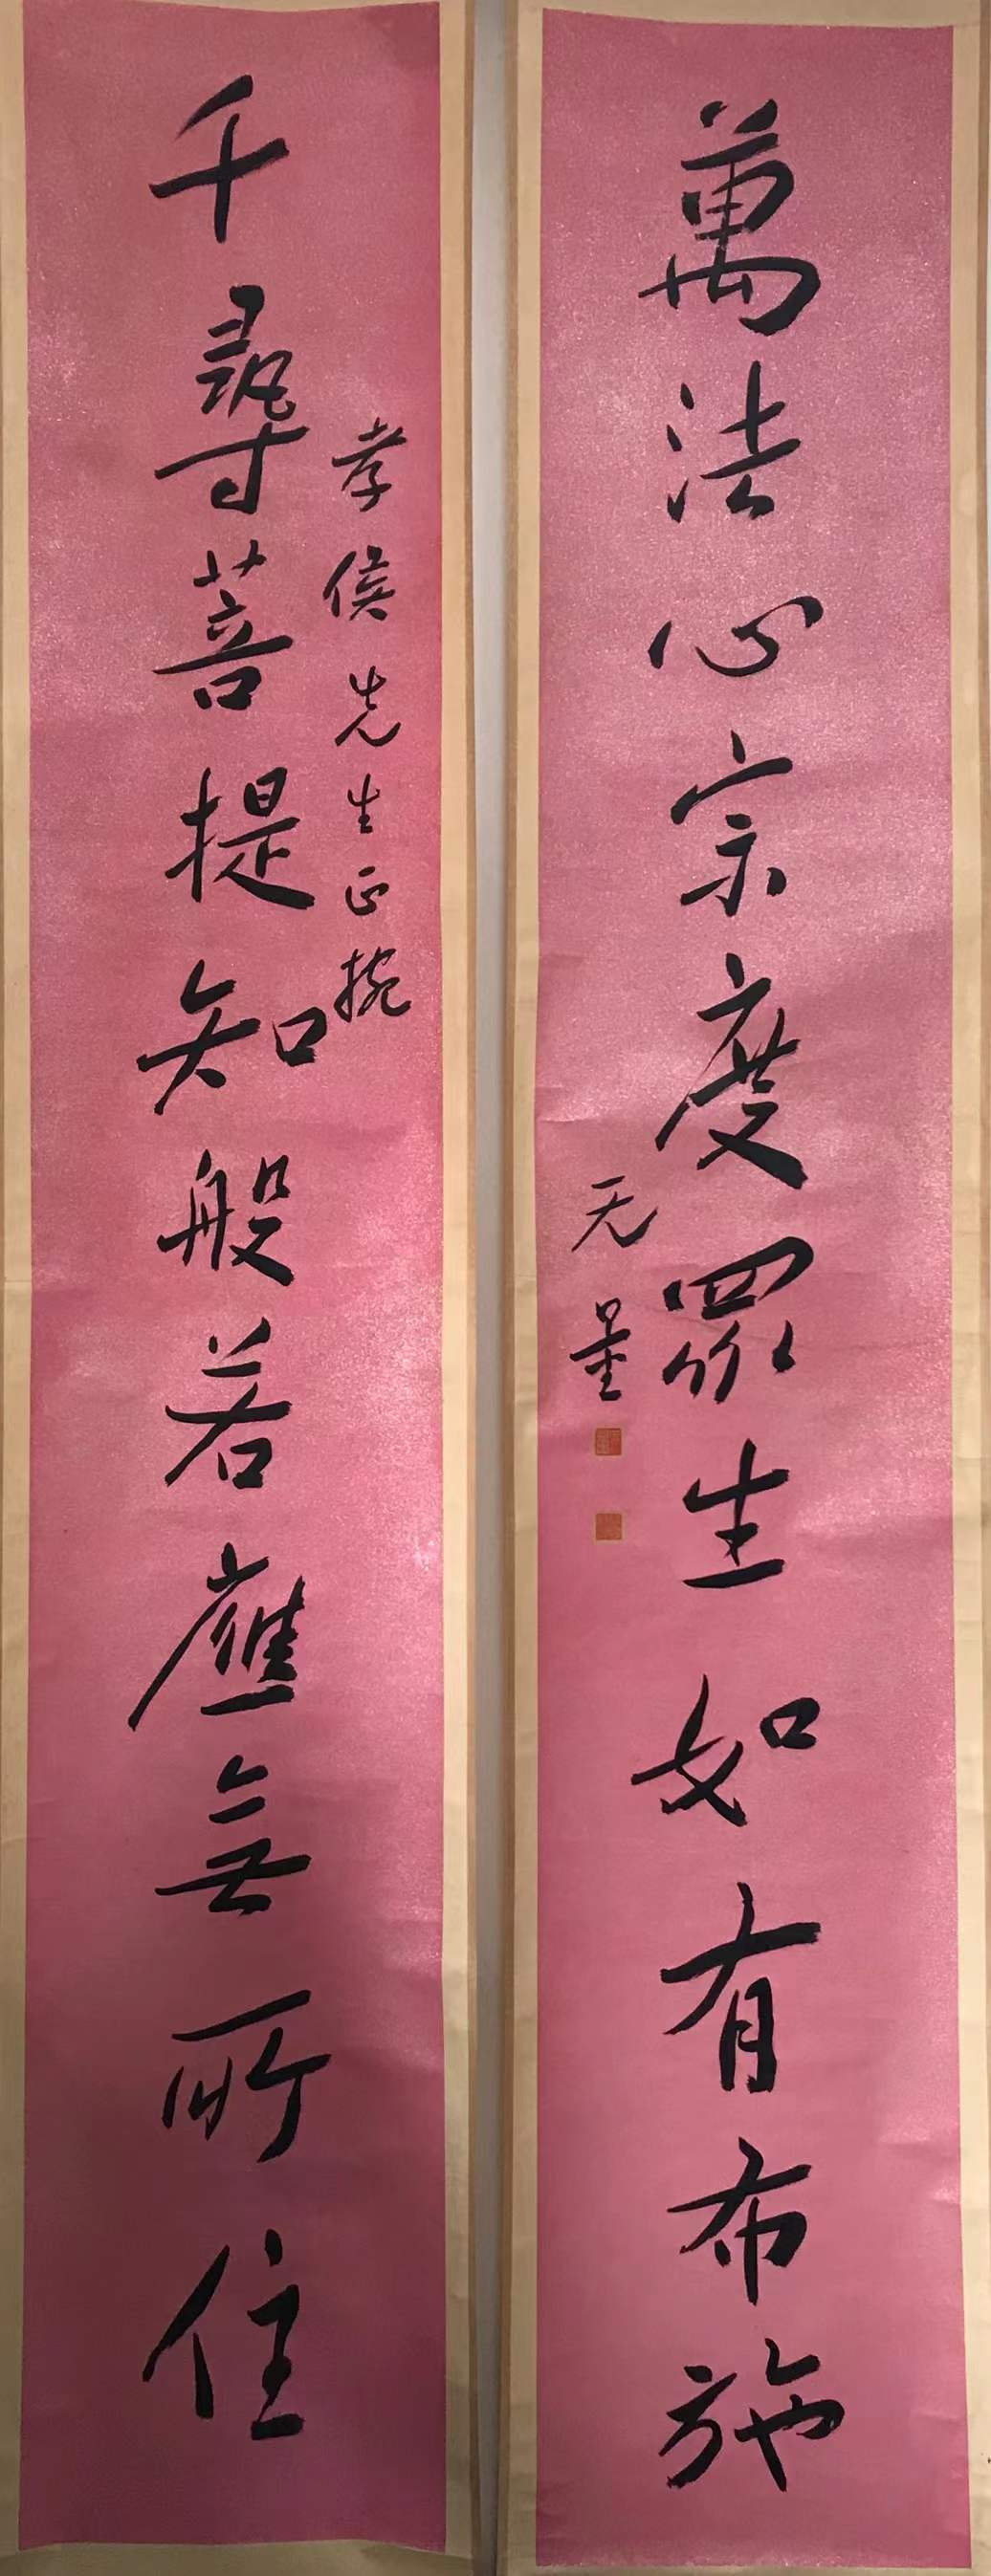 萬法心宗度眾生如有布施
无量
孝侯先生正捥
千尋菩提知般若應無所住